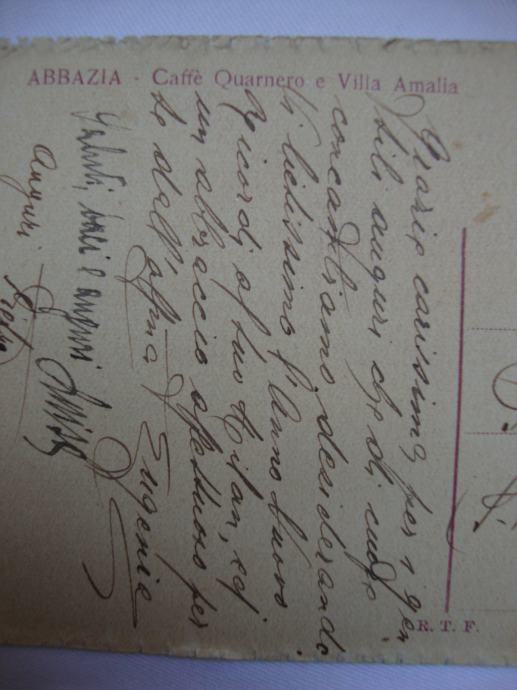 ABBAZIA - Caffè Quarnero e Villa Amalia
Grazie carissima, per i gen
tili auguri che di cuore
contraccambiamo desiderando
Vi lietissimo l'Anno Nuovo
Ricordi al tuo
un abbraccio affettuoso per
te dall' affma Eugenie
Saluti, baci e auguri
auguri
R. T. F.